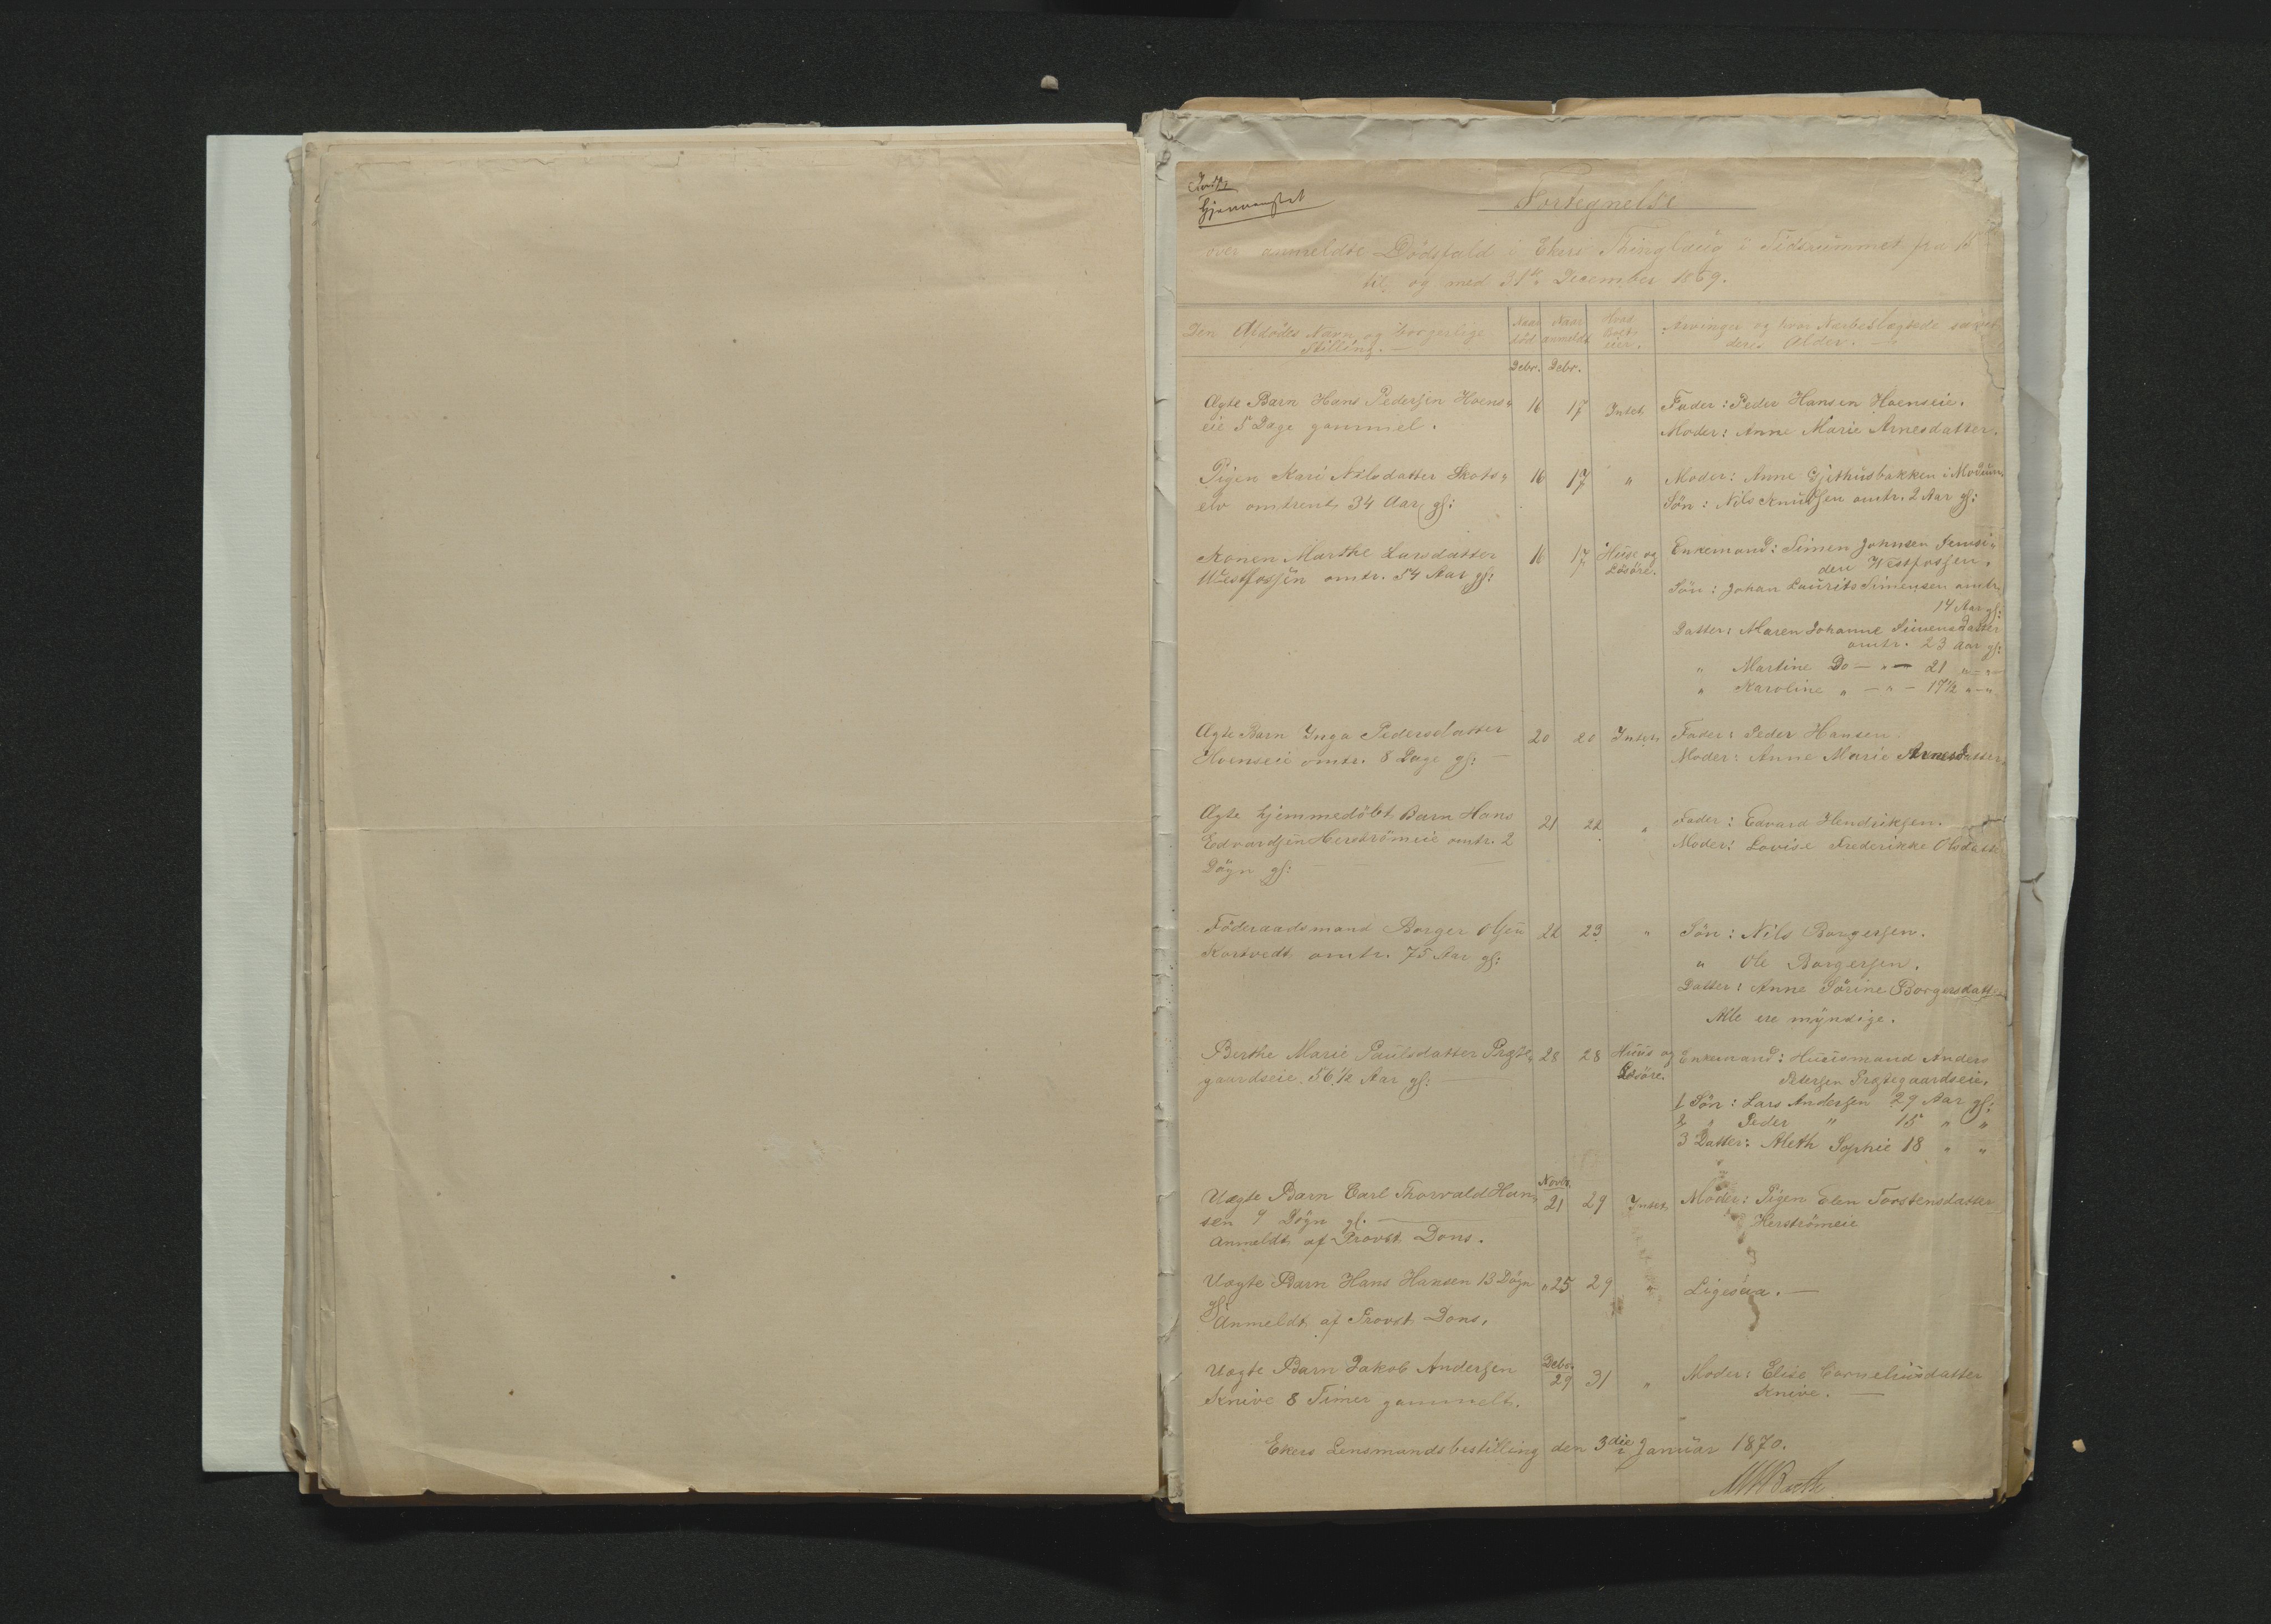 Fortegnelse
over anmeldte Dödsfald i Ekers Thinglaug i Tidsrummet fra 15
til og med 31te December 1869.
Den Afdödes Navn og borgerlige Stilling. Naar död Naar anmeldt Hvad Boet eier. Arvinger og hvor Nærbeslægtede samt deres Alder.
Debr. Debr.
Ægte Barn Hans Pedersen Hoens- 16 17 Intet Fader: Peder Hansen Hoenseie.
eie 5 Dage gammel. Moder: Anne Marie Arnesdatter.
Pigen Kari Nilsdatter Skots- 16 17 " Moder: Anne Gjethusbakken i Modum.
elv omtrent 34 Aar gl: Sön: Nils Knutsen omtr. 2 Aar gl:
Konen Marthe Larsdatter 16 17 Huse og Enkemand: Simen Johnsen
Westfossen omtr. 54 Aar gl: Lösöre. Westfossen.
Sön: Johan Laurits Simensen omtr.
14 Aar gl:
Datter: Maren Johanne Simensdatter
omtr. 23 Aar gl:
" Martine Do — " — 21 " — " —
" Karoline " — " — 17½ " — "
Ægte Barn Inga Pedersdatter 20 20 Intet Fader: Peder Hansen.
Hoenseie omtr. 8 Dage gl: — Moder: Anne Marie Arnesdatter.
Ægte hjemmedöbt Barn Hans 21 22 " Fader: Edvard Hendriksen.
Edvardsen Herströmeie omtr. 2 Moder: Lovise Frederikke Olsdatter
Dögn gl:
Föderaadsmand Borger Olsen 22 23 " Sön: Nils Borgersen.
Korsvedt omtr. 75 Aar gl: " Ole Borgersen.
Datter: Anne Sörine Borgersdatter
Alle ere myndige.
Berthe Marie Paulsdatter Præste- 28 28 Huus og Enkemand: Huusmand Anders
gaardseie. 56½ Aar gl: — Lösöre. Petersen Præstegaardseie.
1 Sön: Lars Andersen 29 Aar gl:
2 " Peder " 15 " "
3 Datter: Aleth Sophie 18 " "
Novbr.
Uægte Barn Carl Thorvald Han- 21 29 Intet Moder: Pigen Elen Torstensdatter
sen 9 Dögn gl. — Herströmeie
Anmeldt af Provst Dons.
Uægte Barn Hans Hansen 13 Dögn " 25 29 " Ligesaa. —
gl:
Anmeldt af Provst Dons.
Debr.
Uægte Barn Jakob Andersen 29 31 " Moder: Elise Corneliusdatter
Knive 8 Timer gammelt. Knive. —
Ekers Lensmandsbestilling den 3die Januar 1870.